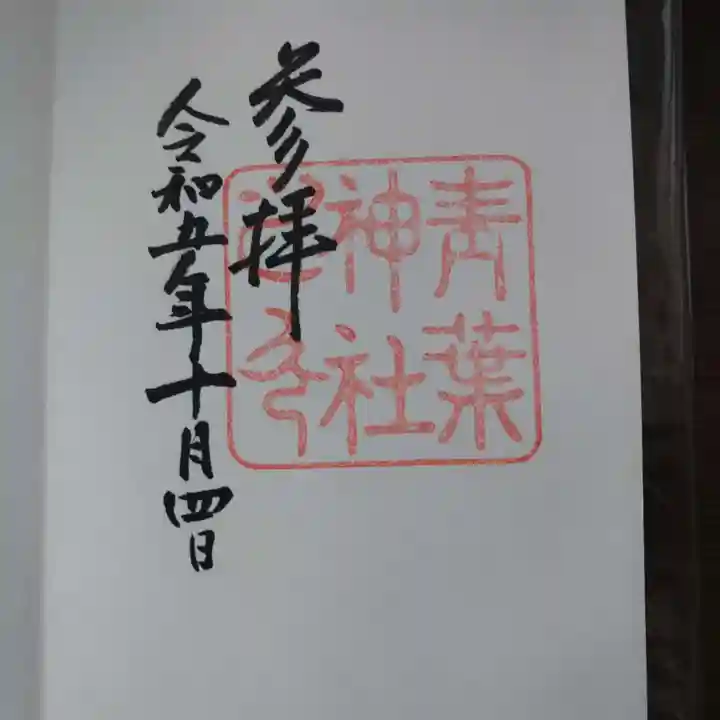 参拝
令和五年十月四日
青葉
神社